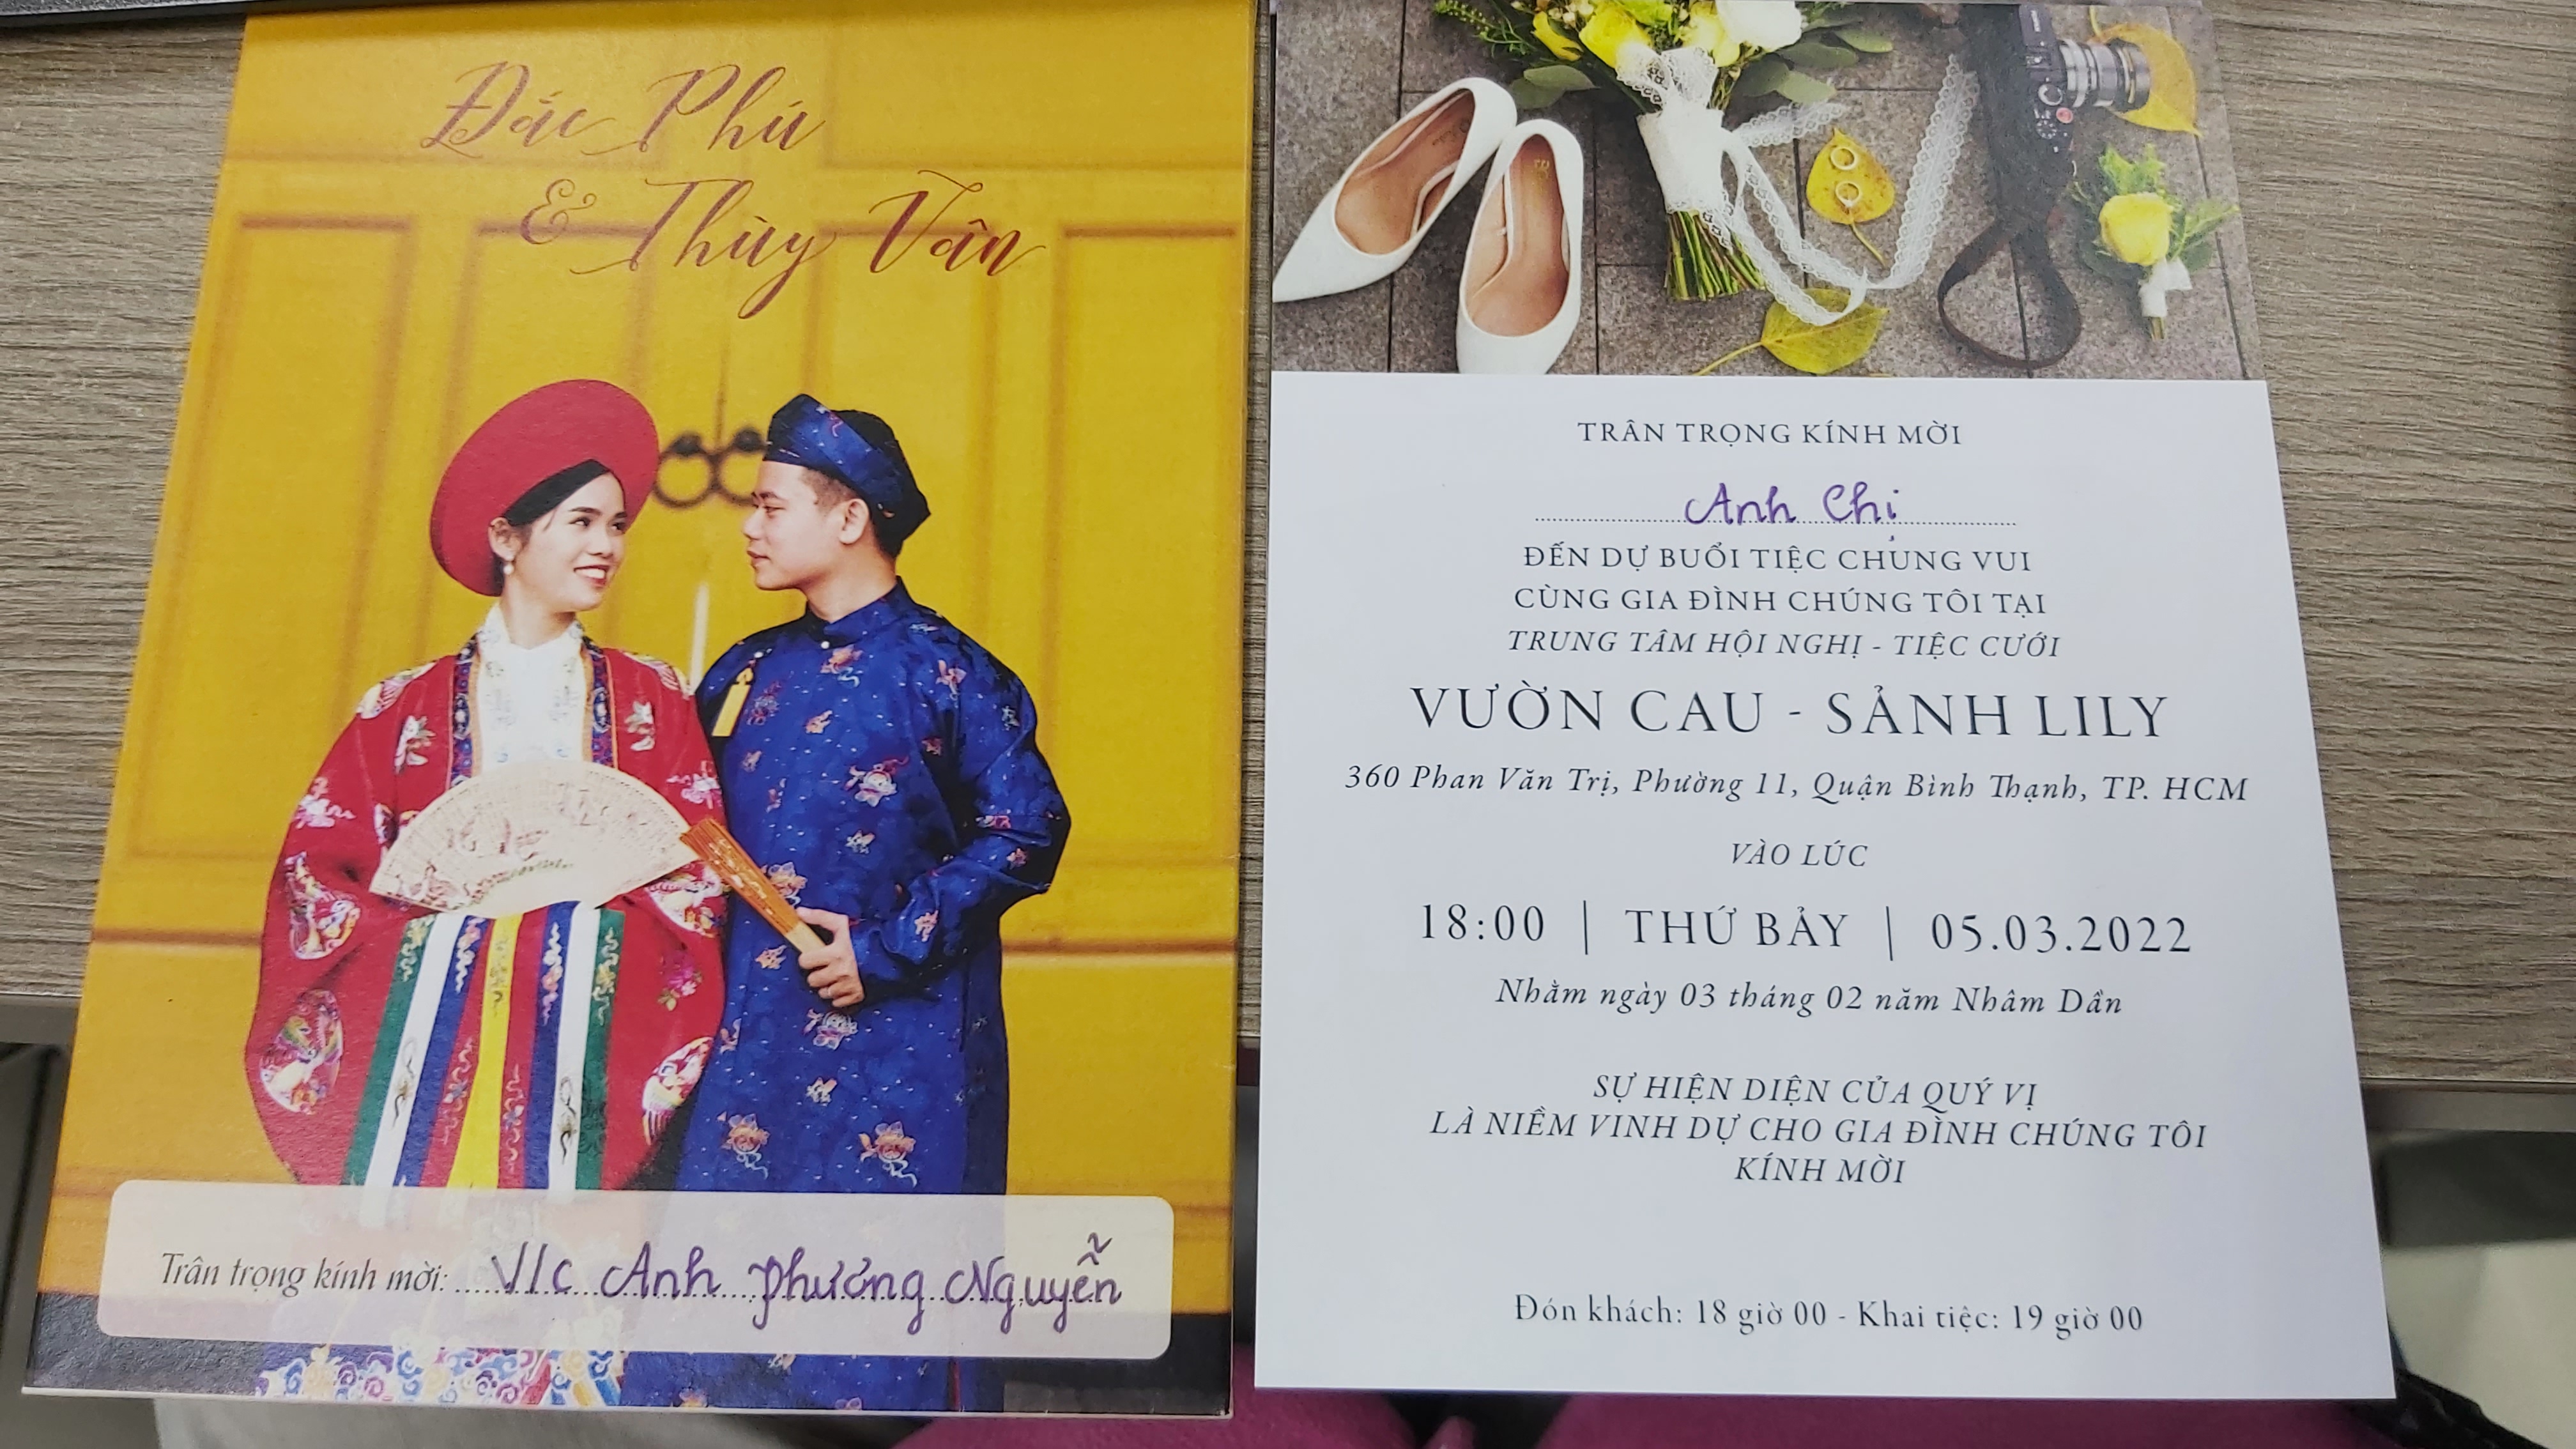 Đức Phú
& Thùy Vân
Trân trọng kính mời: V/c Anh Phương Nguyễn
TRÂN TRỌNG KÍNH MỜI
Anh Chị
ĐẾN DỰ BUỔI TIỆC CHUNG VUI
CÙNG GIA ĐÌNH CHÚNG TÔI TẠI
TRUNG TÂM HỘI NGHỊ - TIỆC CƯỚI
VƯỜN CAU - SẢNH LILY
360 Phan Văn Trị, Phường 11, Quận Bình Thạnh, TP. HCM
VÀO LÚC
18:00 | THỨ BẢY | 05.03.2022
Nhằm ngày 03 tháng 02 năm Nhâm Dần
SỰ HIỆN DIỆN CỦA QUÝ VỊ
LÀ NIỀM VINH DỰ CHO GIA ĐÌNH CHÚNG TÔI
KÍNH MỜI
Đón khách: 18 giờ 00 - Khai tiệc: 19 giờ 00